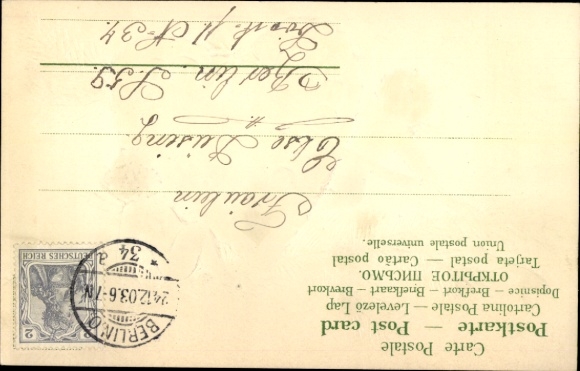 Carte Postale
Postkarte — Post card
Cartolina Postale — Levelező Lap
Dopisnice — Brefkort — Briefkaart — Brevkort
ОТКРЫТОЕ ПИСЬМО.
Tarjeta postal — Cartão postal
Union postale universelle.
2
DEUTSCHES REICH
BERLIN O
24.12.03.6-7N
* 34 a
Fräulein
Else
Berlin. S. 59.
34.